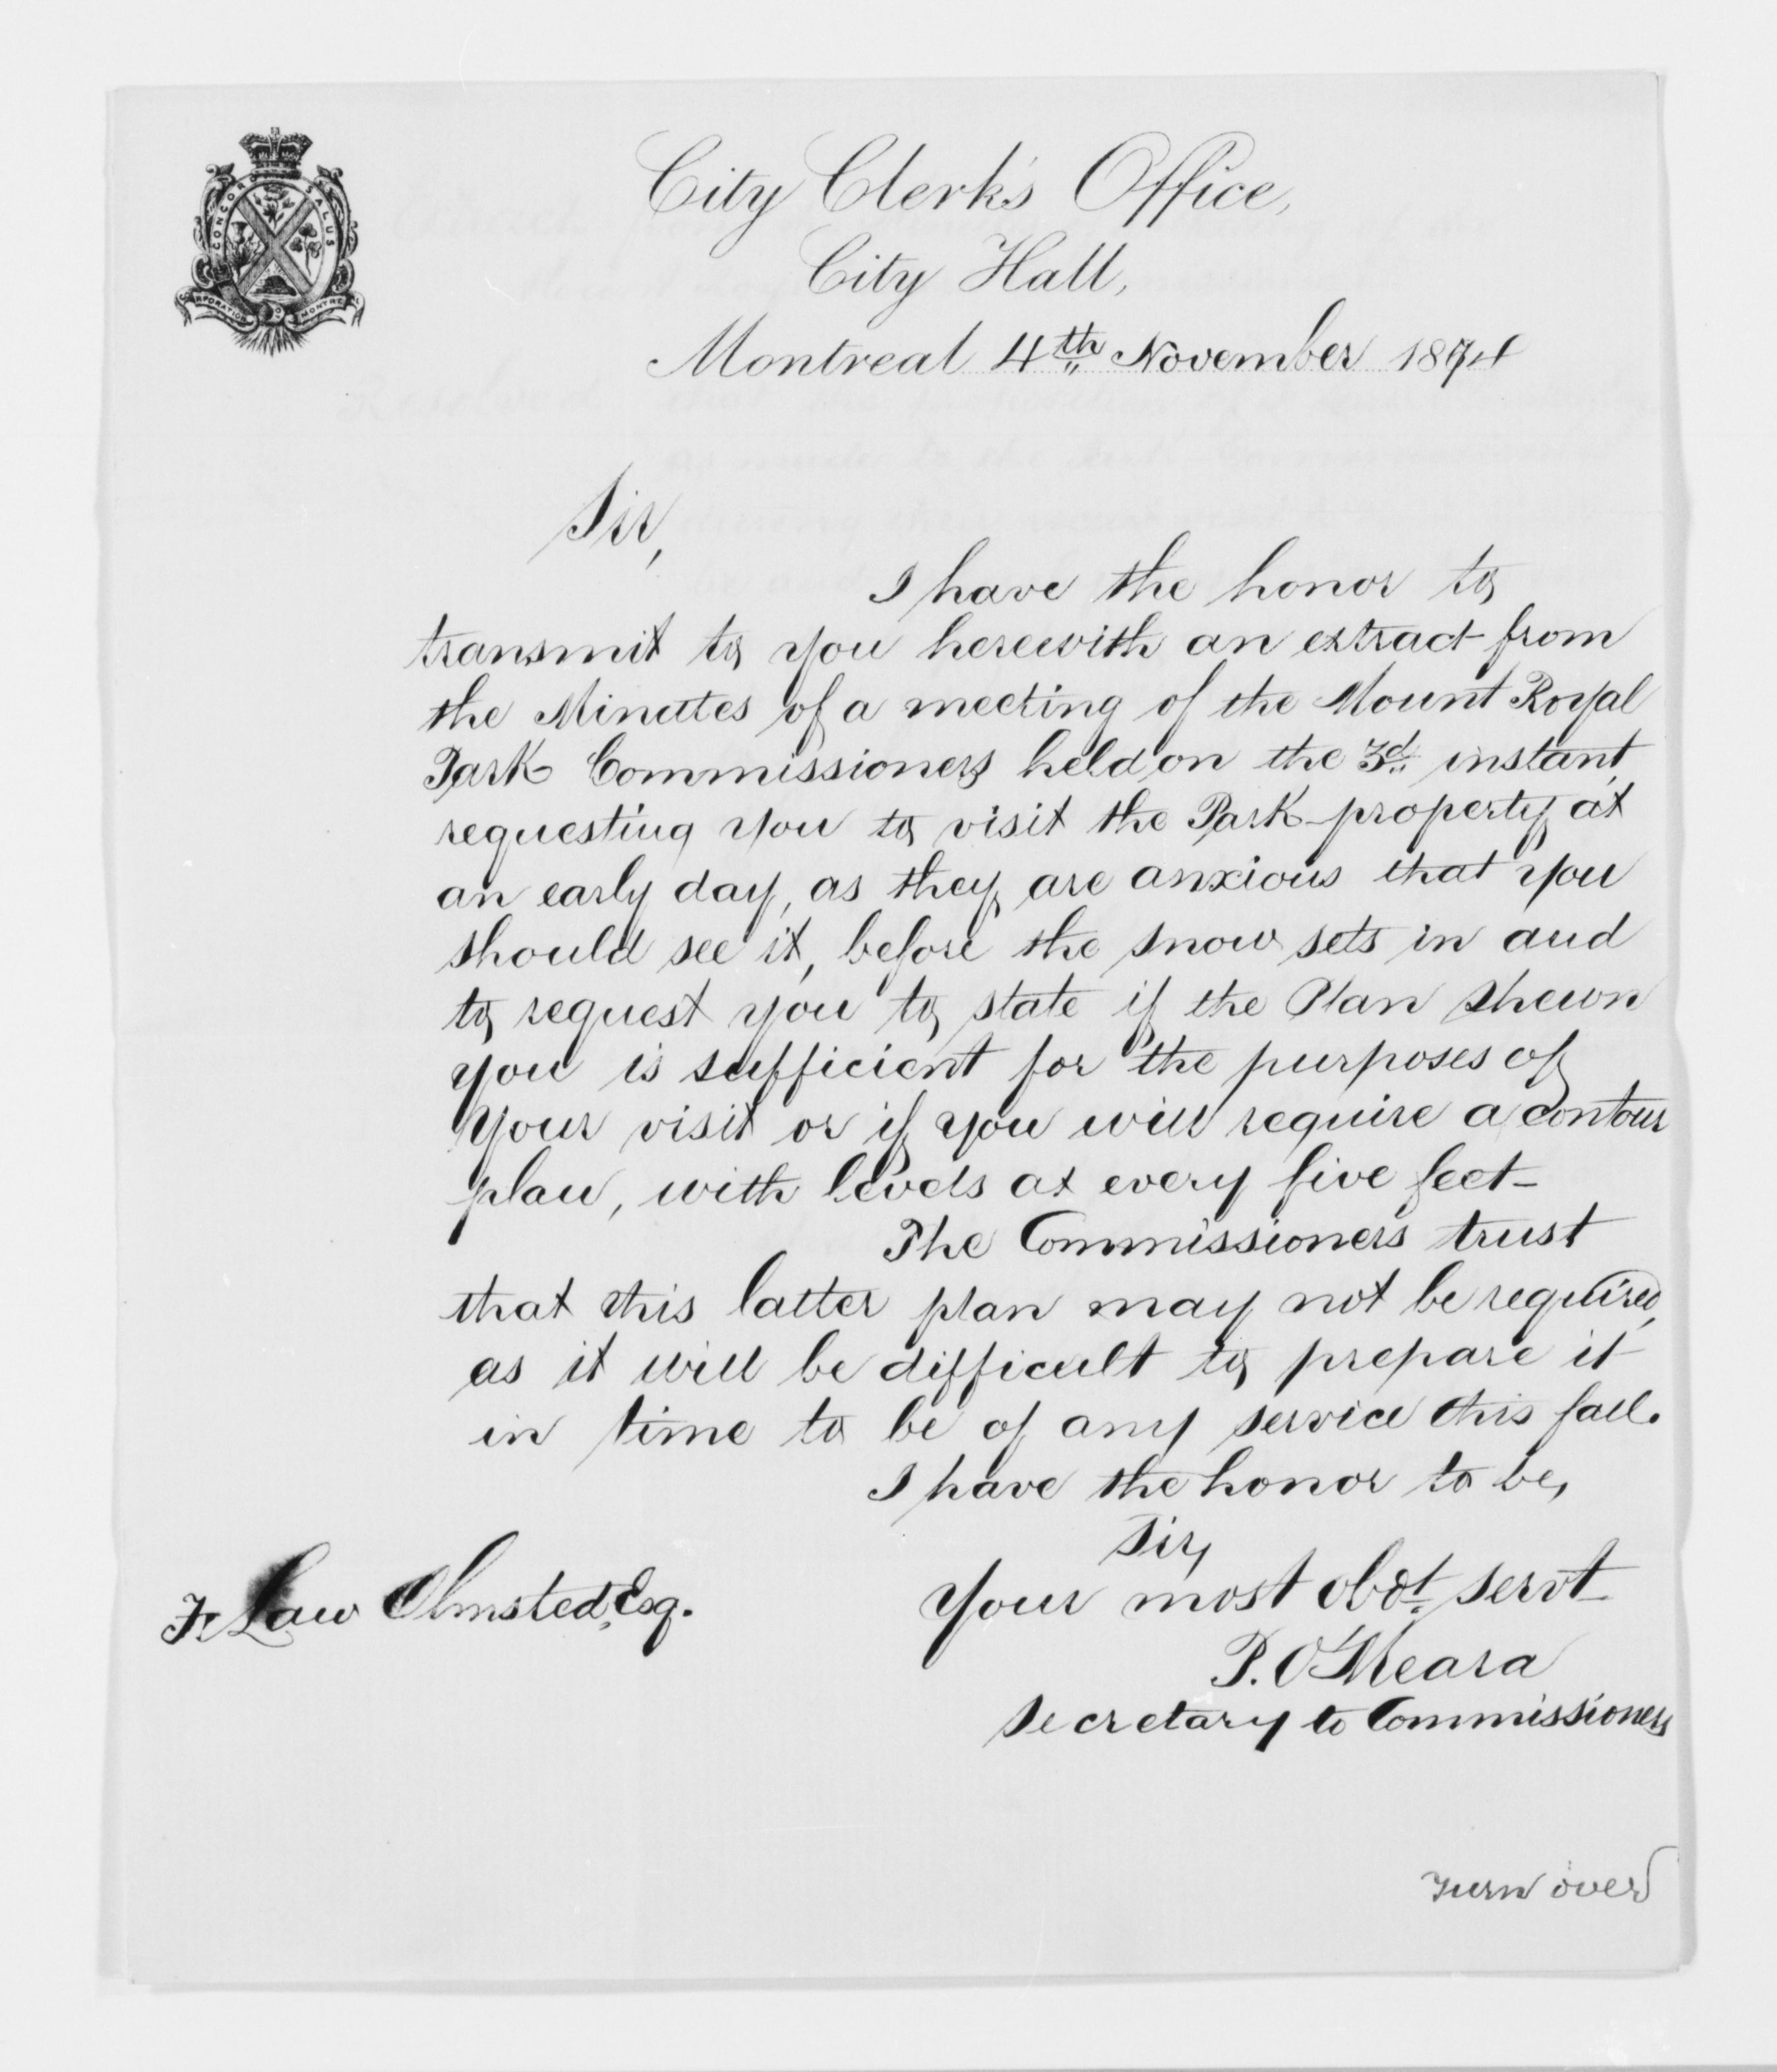 CONCORDIA SALUS
CORPORATION OF MONTREAL
City Clerk's Office,
City Hall,
Montreal 4th November 1874
Sir,
I have the honor to
transmit to you herewith an extract from
the Minutes of a meeting of the Mount Royal
Park Commissioners held on the 3d instant,
requesting you to visit the Park property at
an early day, as they are anxious that you
should see it, before the snow sets in and
to request you to state if the Plan shewn
you is sufficient for the purposes of
your visit or if you will require a contour
plan, with levels at every five feet—
The Commissioners trust
that this latter plan may not be required,
as it will be difficult to prepare it
in time to be of any service this fall.
I have the honor to be,
Sir,
Your most obdt. servt
F. Law Olmsted, Esq.
P. O'Meara
Secretary to Commissioners
Turn over